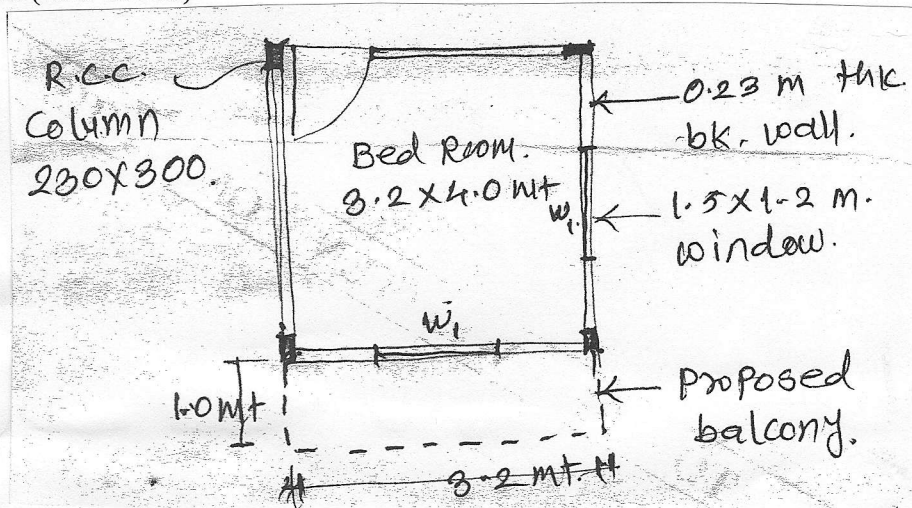 R.C.C.
Column
230X300.
Bed Room.
3.2X4.0 Mt
W1.
W1
0.23 m thk.
bk. wall.
1.5X1.2 m.
window.
1.0 Mt
Proposed
balcony.
3.2 Mt.